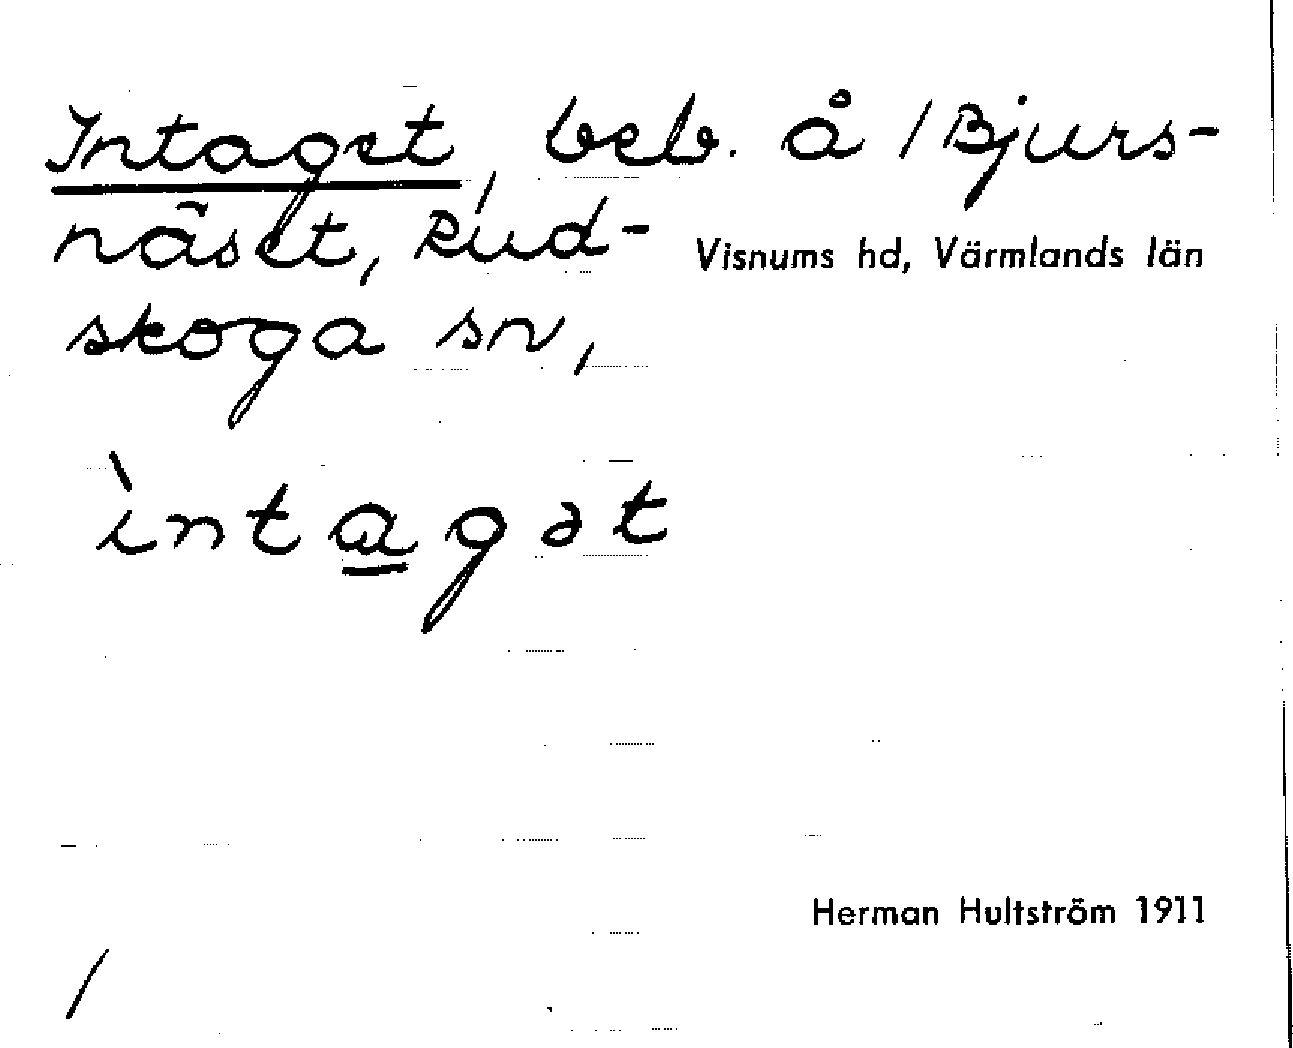 Intaget, beb. å 1 Bjurs-
näset, Rud-
Visnums hd, Värmlands län
skoga sn,
ìntagət
Herman Hultström 1911
/